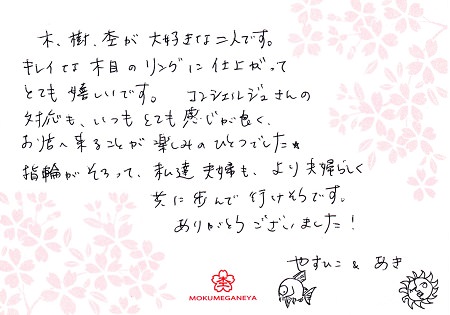 木、樹、杢が大好きな二人です。
キレイな木目のリングに仕上がって
とても嬉しいです。 コンシェルジュさんの
対応も、いつもとても感じが良く、
お店へ来ることが楽しみのひとつでした★
指輪がそろって、私達夫婦も、より夫婦らしく
共に歩んで行けそうです。
ありがとうございました!
やすひこ & あき
MOKUMEGANEYA